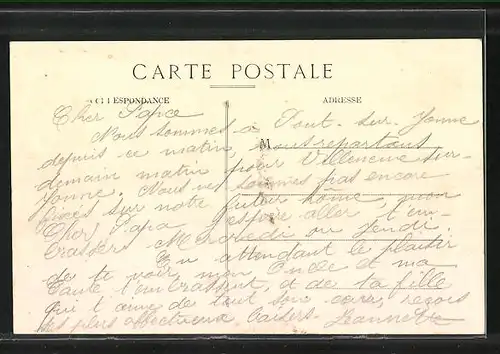 CARTE POSTALE
CORRESPONDANCE
ADRESSE
M
Cher Papa
Nous sommes à Pont-sur-Yonne
depuis ce matin, nous repartons
demain matin pour Villeneuve-sur-
Yonne. Nous ne sommes pas encore
fixés sur notre futur hôme, mon
Cher Papa j'espère aller t'em-
brasser Mercredi ou Jeudi.
En attendant le plaisir
de te voir, mon Oncle et ma
Tante t'embrassent, et de ta fille
qui t'aime de tout son cœur reçois
ses plus affectueux baisers. Jeannette